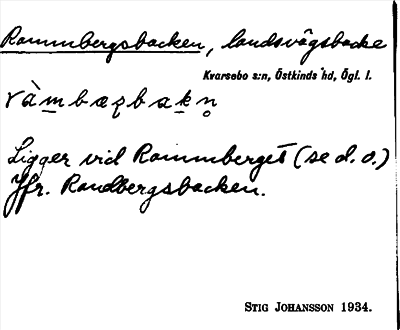 Rammbergsbacken, landsvägsbacke
Kvarsebo s:n, Östkinds hd, Ögl. l.
ràm̲bæʀbak̲n̥
Ligger vid Rammberget (se d. o.)
Jfr. Randbergsbacken.
STIG JOHANSSON 1934.